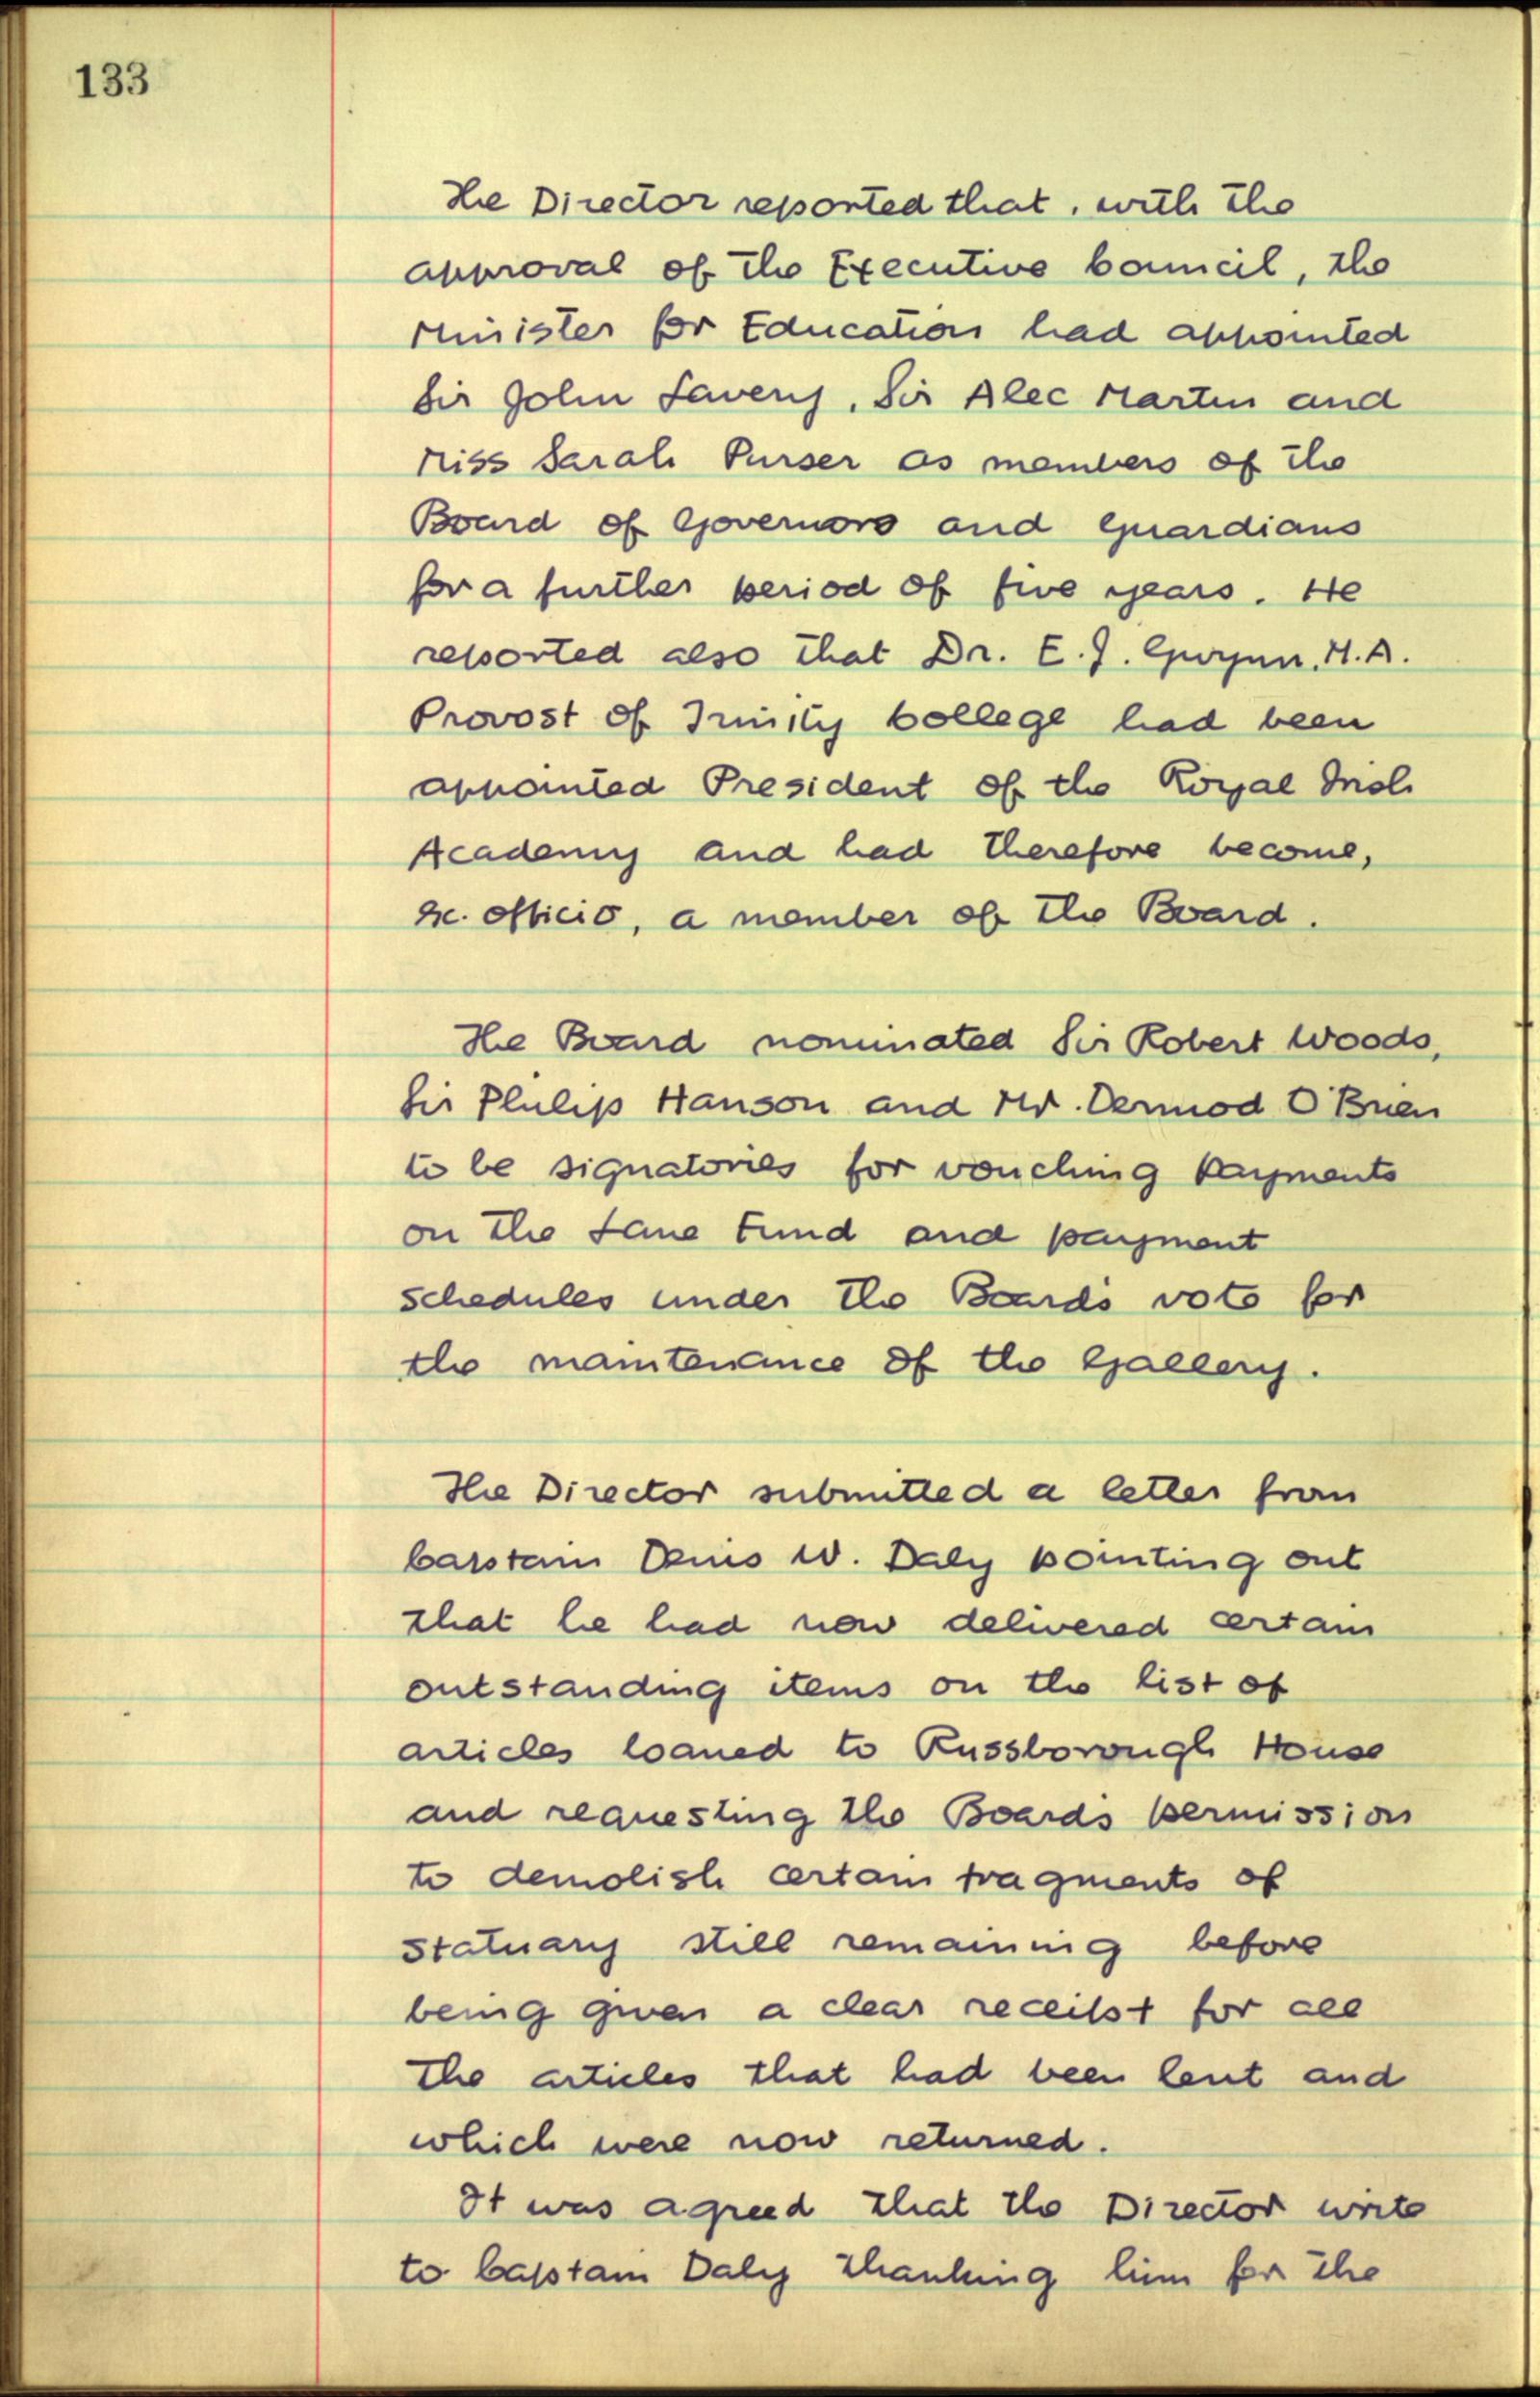 133
The Director reported that, with the
approval of the Executive Council, the
Minister for Education had appointed
Sir John Lavery, Sir Alec Martin and
Miss Sarah Purser as members of the
Board of Governors and Guardians
for a further period of five years. He
reported also that Dr. E.J. Gwynn, M.A.
Provost of Trinity College had been
appointed President of the Royal Irish
Academy and had therefore become,
ex. officio, a member of the Board.
The Board nominated Sir Robert Woods,
Sir Philip Hanson and Mr. Dermod O'Brien
to be signatories for vouching payments
on the Lane Fund and payment
schedules under the Board's vote for
the maintenance of the Gallery.
The Director submitted a letter from
Captain Denis W. Daly pointing out
that he had now delivered certain
outstanding items on the list of
articles loaned to Russborough House
and requesting the Board's permission
to demolish certain fragments of
statuary still remaining before
being given a clear receipt for all
the articles that had been lent and
which were now returned.
It was agreed that the Director write
to Captain Daly thanking him for the